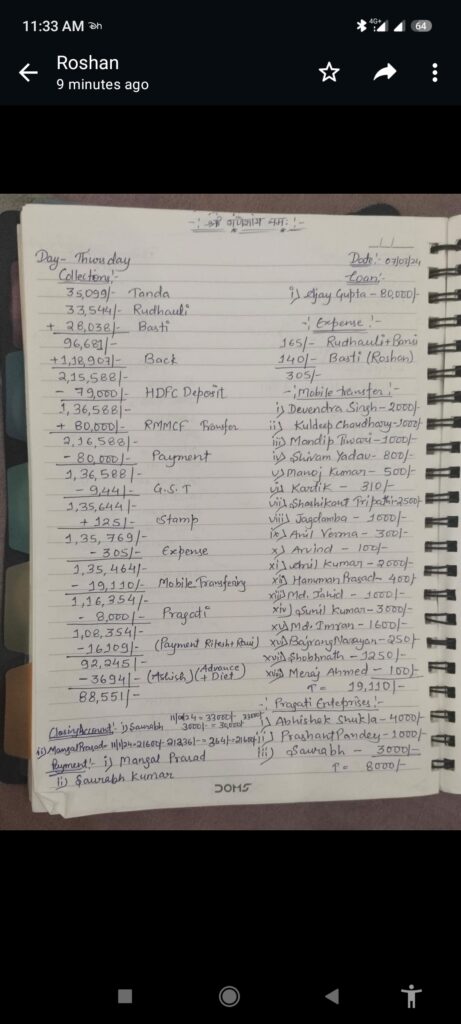 11:33 AM
4G+
64
Roshan
9 minutes ago
-: श्री गणेशाय नमः :-
Day- Thursday
Date:- 07/03/24
Collections:-
35,099/- Tanda
33,544/- Rudhauli
+ 28,038/- Basti
96,681/-
+1,18,907/- Back
2,15,588/-
- 79,000/- HDFC Deposit
1,36,588/-
+ 80,000/- RMMCF Transfer
2,16,588/-
- 80,000/- Payment
1,36,588/-
- 944/- G.S.T
1,35,644/-
+ 125/- Stamp
1,35,769/-
- 305/- Expense
1,35,464/-
- 19,110/- Mobile Transfering
1,16,354/-
- 8,000/- Pragati
1,08,354/-
- 16,109/- (Payment Ritesh + Ravi)
92,245/-
- 3694/- (Ashish) (Advance + Diet)
88,551/-
Loan:-
i) Ajay Gupta - 80,000/-
-: Expense :-
165/- Rudhauli + Bansi
140/- Basti (Roshan)
305/-
-: Mobile transfer :-
i) Devendra Singh - 2000/-
ii) Kuldeep Choudhary - 1000/-
iii) Mandip Tiwari - 1000/-
iv) Shivam Yadav - 800/-
v) Manoj Kumar - 500/-
vi) Kartik - 310/-
vii) Shashikant Tripathi - 2500/-
viii) Jagdamba - 1000/-
ix) Anil Verma - 300/-
x) Arvind - 100/-
xi) Anil Kumar - 2000/-
xii) Hanuman Prasad - 400/-
xiii) Md. Jahid - 1000/-
xiv) Sunil Kumar - 3000/-
xv) Md. Imran - 1600/-
xvi) Bajrang Narayan - 250/-
xvii) Shobhnath - 1250/-
xviii) Meraj Ahmed - 100/-
T = 19,110/-
-: Pragati Enterprises :-
i) Abhishek Shukla - 4000/-
ii) Prashant Pandey - 1000/-
iii) Saurabh - 3000/-
T = 8000/-
Closing Account:- i) Saurabh
ii) Mangal Prasad
Payment:- i) Mangal Prasad
ii) Saurabh Kumar
DOMS